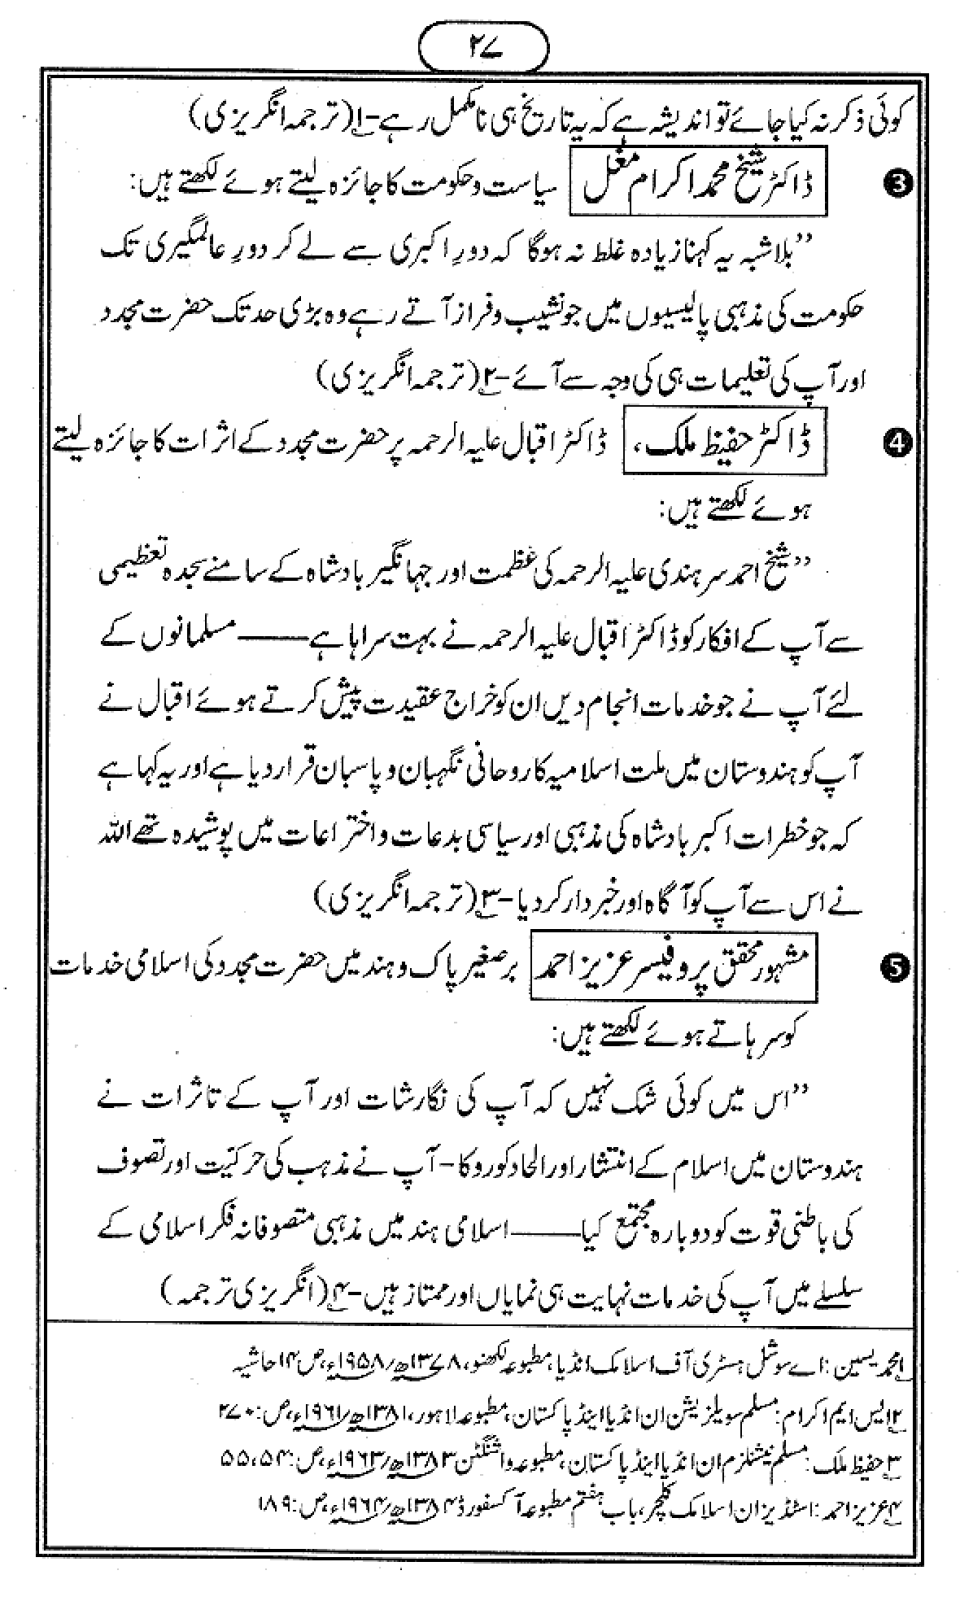 ۲۷
کوئی ذکر نہ کیا جائے تو اندیشہ ہے کہ یہ تاریخ ہی نامکمل رہے-۱ (ترجمہ انگریزی)
❸ ڈاکٹر شیخ محمد اکرام مغل سیاست و حکومت کا جائزہ لیتے ہوئے لکھتے ہیں:
”بلاشبہ یہ کہنا زیادہ غلط نہ ہوگا کہ دورِ اکبری سے لے کر دورِ عالمگیری تک
حکومت کی مذہبی پالیسیوں میں جو نشیب و فراز آتے رہے وہ بڑی حد تک حضرت مجدد
اور آپ کی تعلیمات ہی کی وجہ سے آئے-۲ (ترجمہ انگریزی)
❹ ڈاکٹر حفیظ ملک، ڈاکٹر اقبال علیہ الرحمہ پر حضرت مجدد کے اثرات کا جائزہ لیتے
ہوئے لکھتے ہیں:
”شیخ احمد سرہندی علیہ الرحمہ کی عظمت اور جہانگیر بادشاہ کے سامنے سجدہ تعظیمی
سے آپ کے افکار کو ڈاکٹر اقبال علیہ الرحمہ نے بہت سراہا ہے——— مسلمانوں کے
لئے آپ نے جو خدمات انجام دیں ان کو خراج عقیدت پیش کرتے ہوئے اقبال نے
آپ کو ہندوستان میں ملت اسلامیہ کا روحانی نگہبان و پاسبان قرار دیا ہے اور یہ کہا ہے
کہ جو خطرات اکبر بادشاہ کی مذہبی اور سیاسی بدعات و اختراعات میں پوشیدہ تھے اللہ
نے اس سے آپ کو آگاہ اور خبردار کردیا-۳ (ترجمہ انگریزی)
❺ مشہور محقق پروفیسر عزیز احمد برصغیر پاک و ہند میں حضرت مجدد کی اسلامی خدمات
کو سرہاتے ہوئے لکھتے ہیں:
”اس میں کوئی شک نہیں کہ آپ کی نگارشات اور آپ کے تاثرات نے
ہندوستان میں اسلام کے انتشار اور الحاد کو روکا- آپ نے مذہب کی حرکیّت اور تصوف
کی باطنی قوت کو دوبارہ مجتمع کیا——— اسلامی ہند میں مذہبی متصوفانہ فکر اسلامی کے
سلسلے میں آپ کی خدمات نہایت ہی نمایاں اور ممتاز ہیں-۴ (انگریزی ترجمہ)
۱ محمد یسین: اے سوشل ہسٹری آف اسلامک انڈیا، مطبوعہ لکھنو، ۱۳۷۸ھ/۱۹۵۸ء، ص ۱۴ حاشیہ
۲ ایس ایم اکرام: مسلم سویلزیشن ان انڈیا اینڈ پاکستان، مطبوعہ لاہور، ۱۳۸۱ھ/۱۹۶۱ء، ص: ۲۷۰
۳ حفیظ ملک: مسلم نیشنلزم ان انڈیا اینڈ پاکستان، مطبوعہ واشنگٹن ۱۳۸۳ھ/۱۹۶۳ء، ص: ۵۴، ۵۵
۴ عزیز احمد: اسٹڈیز ان اسلامک کلچر، باب ہفتم مطبوعہ آکسفورڈ ۱۳۸۴ھ/۱۹۶۴ء، ص: ۱۸۹